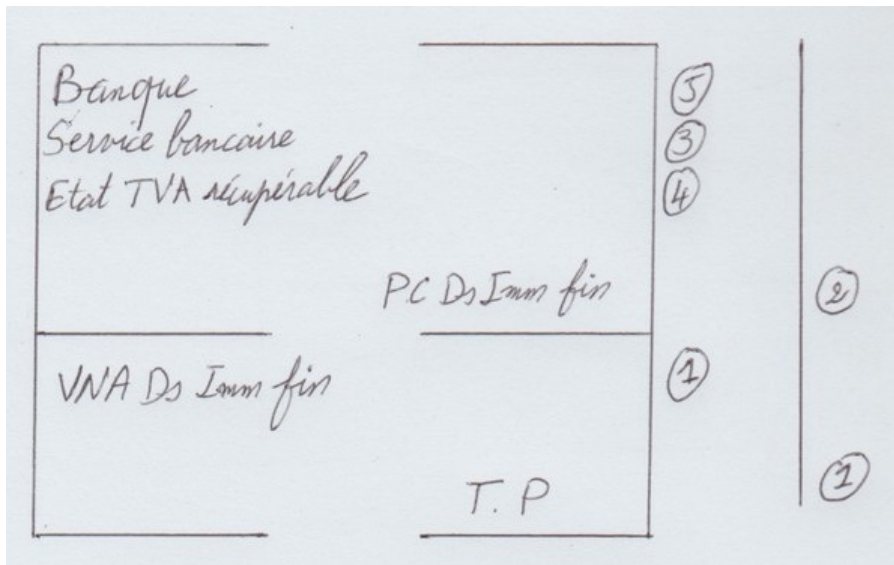 Banque ⑤
Service bancaire ③
Etat TVA récupérable ④
PC Ds Imm fin ②
VNA Ds Imm fin ①
T.P ①